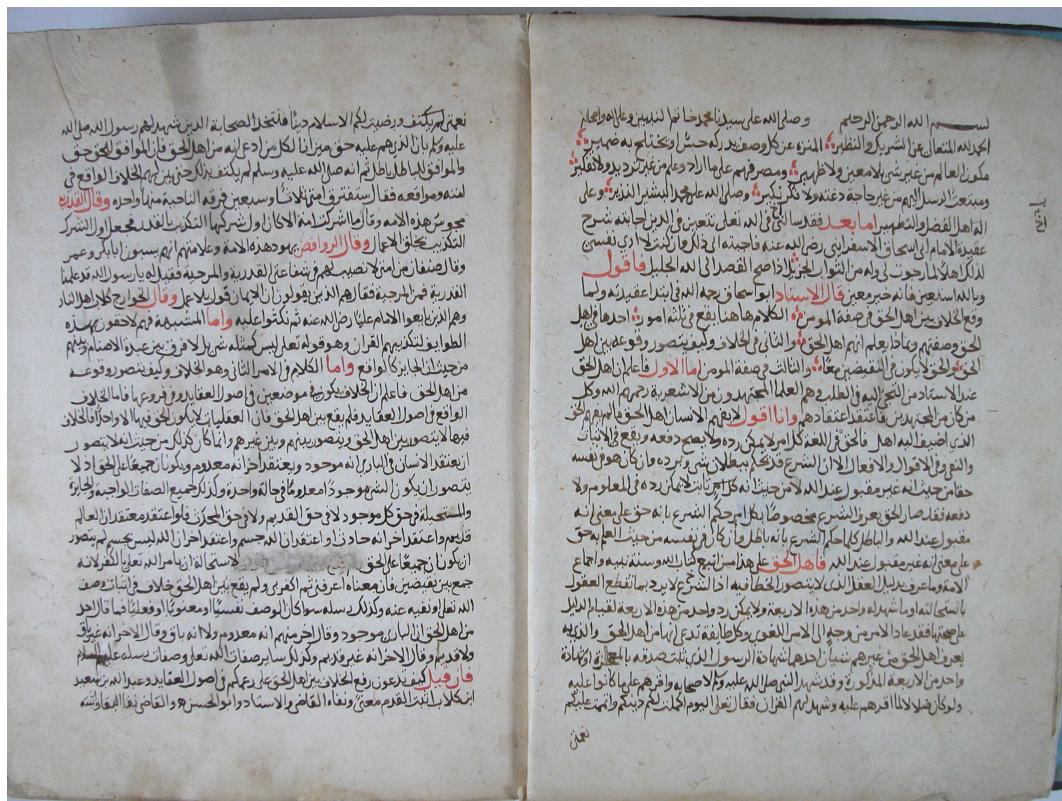 بسم الله الرحمن الرحيم وصلى الله على سيدنا محمد خاتم النبيين وعلى اله
الحمد لله المتعال عن الشريك والنظير المنزه عن كل وصف يدركه حس او يختلج به ضمير
مكون العالم من غير شي لا معين ولا ظهير ومصرفهم على ما اراد وعلم من غير ترديد ولا تفكير
ومبتعث الرسل اليهم من غير حاجة دعته ولا نكير وصلى الله على محمد البشير النذير وعلى
اله اهل الفضل والتطهير اما بعد فقد سالني في الله تعالى من الذين اجابته شرح
عقيدة الامام ابي اسحاق الاسفرايني رضي الله عنه فاجبته الى ذلك وان كنت لا ارى نفسي
لذلك اهلا لما رجوت لي وله من الثواب الجزيل اذا صح القصد الى الله الجليل فاقول
وبالله استعين فانه خير معين قال الاستاد ابو اسحاق رحمه الله في ابتدا عقيدته ولما
وقع الخلاف بين اهل الحق في صفة المومن الكلام هاهنا يقع في ثلثة امور احدها في اهل
الحق وصفتهم وبماذا يعلم انهم اهل الحق والثاني في الخلاف وكيف يتصور وقوعه بين اهل
الحق والحق لا يكون في النقيضين معا والثالث في صفة المومن اما الاول فاعلم ان اهل الحق
عند الاستاد من الحق اليه في الطلب وهم العلما المجتهدون من الاشعرية رحمهم الله وكل
من كان من المجتهدين فاعتقد اعتقادهم وانا اقول لا يفهم الانسان اهل الحق ما لم يفهم الحق
الذي اضيف اليه اهل فالحق في اللغة كل امر لا يمكن رده ولا يصح دفعه ويقع في الاثبات
والنفي وفي الاقوال والافعال الا ان الشرع قد يحكم ببطلان شي ويرده وان كان هو في نفسه
حقا من حيث انه غير مقبول عند الله لا من حيث انه كل امر ثابت لا يمكن رده في المعلوم ولا
دفعه فقد صار الحق بعرف الشرع مخصوصا بكل امر حكم الشرع بانه حق على معنى انه
مقبول عند الله والباطل كلما حكم الشرع بانه باطل وان كان في نفسه من حيث العلم به حق
على معنى انه غير مقبول عند الله فاهل الحق على هذا من اتبع كتاب الله وسنة نبيه واجماع
الامة وما عرف بدليل العقل الذي لا يتصور الخطا فيه اذا الشرع لا يرد بما تقطع العقول
باستحالته او ما شهد له واحد من هذه الاربعة ولا يمكن رد واحد من هذه الاربعة لقيام الدليل
على صحته فقد عاد الامر من وجه الى الامر اللغوي وكل طايفة تدعي انها من اهل الحق والذي به
يعرف اهل الحق من غيرهم شيان احدهما شهادة الرسول الذي ثبت صدقه بالمعجزة او شهادة
واحد من الاربعة المذكورة وقد شهد النبي صلى الله عليه وسلم لاصحابه واقرهم على ما كانوا عليه
ولو كان ضلالا لما اقرهم عليه وشهد لهم القران فقال تعالى اليوم اكملت لكم دينكم واتممت عليكم
نعمتي
نعمتي لم يكتف ورضيت لكم الاسلام دينا فنتخذ الصحابة الذين شهد لهم رسول الله صلى الله
عليه وسلم بان الذي هم عليه حق ميزانا لكل من ادعى انه من اهل الحق فان الموافق للحق حق
والموافق للباطل باطل ثم انه صلى الله عليه وسلم لم يكتف بذلك حتى بين لهم الخلاف الواقع في
امته ومواقعه فقال ستفترق امتي ثلاثا وسبعين فرقة الناجية منها واحدة وقال القدرية
مجوس هذه الامة وقال ما اشركت امة الا كان اول شركها التكذيب بالقدر فجعل اول الشرك
التكذيب بخلق الاعمال وقال الروافض يهود هذه الامة وعلامتهم انهم يسبون ابا بكر وعمر
وقال صنفان من امتي لا نصيب لهم في شفاعتي القدرية والمرجية فقيل له يا رسول الله قد علمنا
القدرية فمن المرجية فقال هم الذين يقولون ان الايمان قول بلا عمل وقال الخوارج كلاب اهل النار
وهم الذين بايعوا الامام عليا رضي الله عنه ثم نكثوا عليه واما المشبهة فهم لاحقون بهذه
الطوايف لتكذيبهم القران وهو قوله تعالى ليس كمثله شي بل لا فرق بين عبدة الاصنام وبينهم
من حيث ان الجايز كالواقع واما الكلام في الامر الثاني وهو الخلاف وكيف يتصور وقوعه
من اهل الحق فاعلم ان الخلاف يكون في موضعين في اصول العقايد وفي فروعها فاما الخلاف
الواقع في اصول العقايد فلم يقع بين اهل الحق فان العقليات لا يكون الحق فيها الا واحدا فالخلاف
فيها لا يتصور بين اهل الحق ويتصور بينهم وبين غيرهم وانما كان كذلك من حيث انه لا يتصور
ان يعتقد الانسان في الباري انه موجود ويعتقد اخر انه معدوم ويكونان جميعا على الحق اذ لا
يتصور ان يكون الشي موجودا معدوما في حالة واحدة وكذلك جميع الصفات الواجبة والجايزة
والمستحيلة في حق كل موجود لا في حق القديم ولا في حق المحدث فلو اعتقد معتقد ان العالم
قديم واعتقد اخر انه حادث او اعتقد ان الله جسم واعتقد اخر ان الله ليس بجسم لم يتصور
ان يكونا جميعا على الحق لاستحالة ان يامر الله تعالى بالكفر لانه
جمع بين نقيضين فان معناه اعرفني ثم اكفر بي ولم يقع بين اهل الحق خلاف في اثبات وصف
الله تعالى ونفيه عنه وكذلك رسله سوا كان الوصف نفسيا او معنويا او فعليا فما قال احد
من اهل الحق ان الباري موجود وقال اخر منهم انه معدوم ولا انه باق وقال الاخر انه غير باق
ولا قديم وقال الاخر انه غير قديم وكذلك ساير صفات الله تعالى وصفات رسله عليهم السلام
فان قيل كيف تدعون رفع الخلاف بين اهل الحق على زعمكم في اصول العقايد وعبد الله بن سعيد
ابن كلاب اثبت القدم معنى ونفاه القاضي والاستاد وابو الحسن والقاضي نفيا البقا واثبته